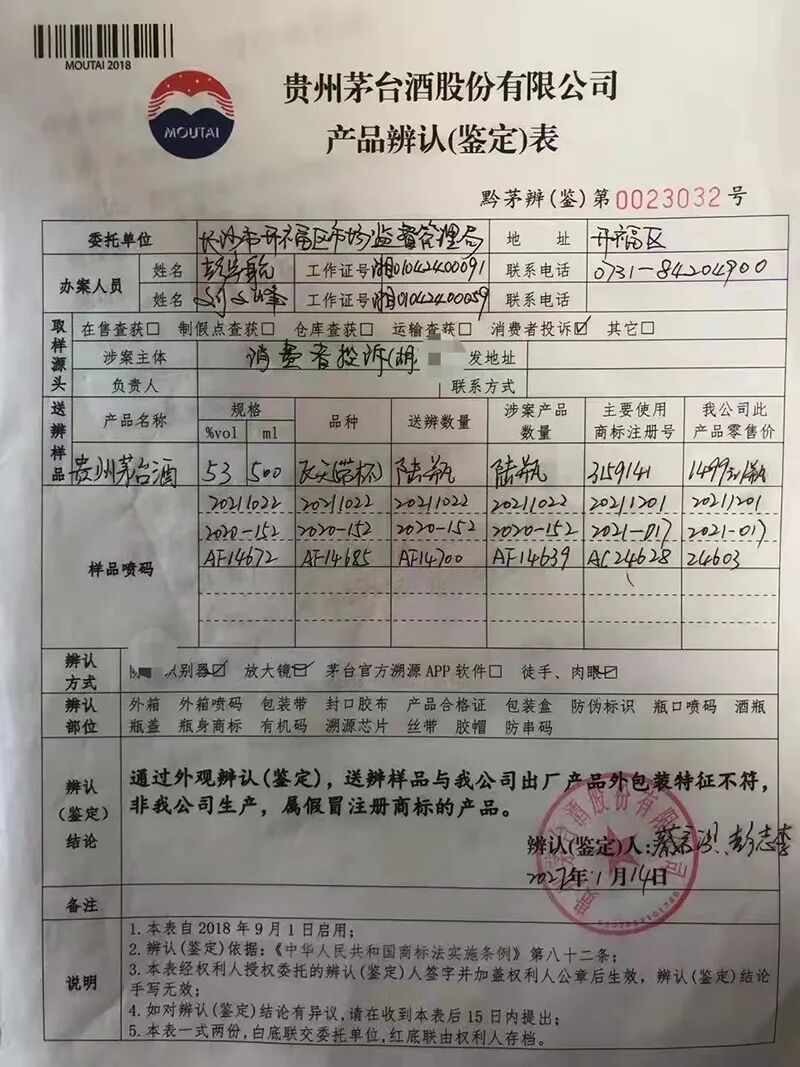 MOUTAI 2018
MOUTAI
贵州茅台酒股份有限公司
产品辨认(鉴定)表
黔茅辨(鉴)第0023032号
委托单位 长沙市开福区市场监督管理局 地 址 开福区
办案人员 姓名 工作证号 湘01042400091 联系电话 0731-84204900
姓名 工作证号 湘01042400059 联系电话
取样源头 在售查获□ 制假点查获□ 仓库查获□ 运输查获□ 消费者投诉☑ 其它□
涉案主体 消费者投诉(湖 发地址
负责人 联系方式
送辨样品 产品名称 规格 %vol ml 品种 送辨数量 涉案产品数量 主要使用商标注册号 我公司此产品零售价
贵州茅台酒 53 500 飞天(带杯) 陆瓶 陆瓶 3159141 1499元/瓶
样品喷码
20211022 20211022 20211022 20211022 20211201 20211201
2020-152 2020-152 2020-152 2020-152 2021-017 2021-017
AF14672 AF14685 AF14700 AF14639 AC24628 24603
辨认方式 识别器☑ 放大镜☑ 茅台官方溯源APP软件□ 徒手、肉眼☑
辨认部位 外箱 外箱喷码 包装带 封口胶布 产品合格证 包装盒 防伪标识 瓶口喷码 酒瓶
瓶盖 瓶身商标 有机码 溯源芯片 丝带 胶帽 防串码
辨认(鉴定)结论
通过外观辨认(鉴定)，送辨样品与我公司出厂产品外包装特征不符，
非我公司生产，属假冒注册商标的产品。
辨认(鉴定)人：
2022年1月14日
备注
说明
1.本表自2018年9月1日启用；
2.辨认(鉴定)依据：《中华人民共和国商标法实施条例》第八十二条；
3.本表经权利人授权委托的辨认(鉴定)人签字并加盖权利人公章后生效，辨认(鉴定)结论
手写无效；
4.如对辨认(鉴定)结论有异议，请在收到本表后15日内提出；
5.本表一式两份，白底联交委托单位，红底联由权利人存档。